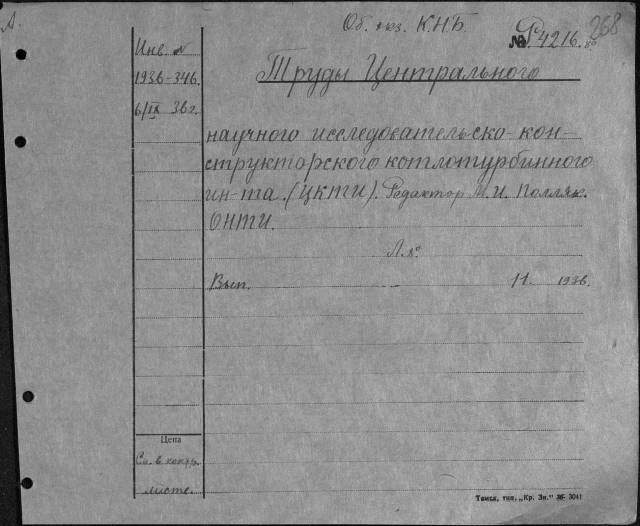 А.
Об. физ. К.Н.Б.
268
№ Р 4216. 8°
Инв. №
1936-346.
6/IX 36 г.
Труды Центрального
научного исследовательско-кон-
структорского котлотурбинного
ин-та. (ЦКТИ). Редактор М.И. Полляк.
ОНТИ.
Л. 8°
Вып. 11 1936.
Цена
См. в контр.
листе.
Томск, тип. „Кр. Зн." 36- 3041